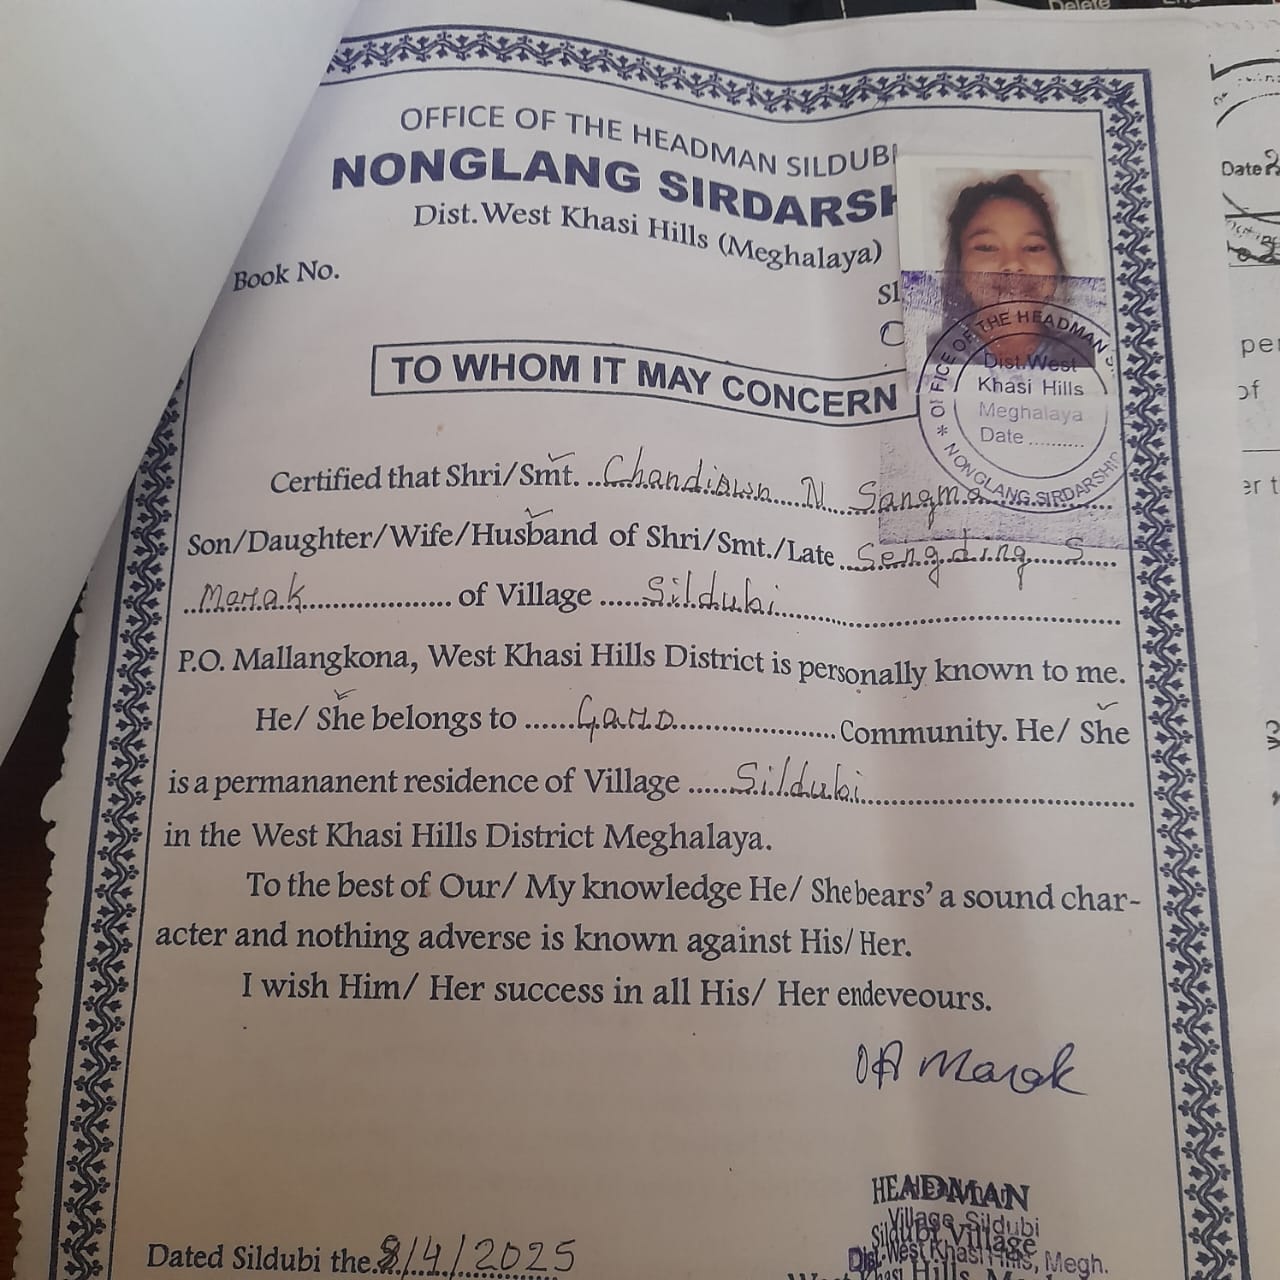 Delete
OFFICE OF THE HEADMAN SILDUBI
NONGLANG SIRDARSH
Dist. West Khasi Hills (Meghalaya)
Book No.
Sl
TO WHOM IT MAY CONCERN
OFFICE OF THE HEADMAN
Dist. West
Khasi Hills
Meghalaya
Date ..........
* NONGLANG SIRDARSHIP
Certified that Shri/Smt. .. N Sangma
Son/Daughter/Wife/Husband of Shri/Smt./Late Sengding S
Marak of Village Sildubi
P.O. Mallangkona, West Khasi Hills District is personally known to me.
He/ She belongs to Garo Community. He/ She
is a permananent residence of Village Sildubi
in the West Khasi Hills District Meghalaya.
To the best of Our/ My knowledge He/ She bears' a sound char-
acter and nothing adverse is known against His/ Her.
I wish Him/ Her success in all His/ Her endeveours.
Marak
HEADMAN
Village Sildubi
Sildubi Village
Dist-West Khasi Hills, Megh.
Dated Sildubi the 8/4/2025
Date
per
of
er t